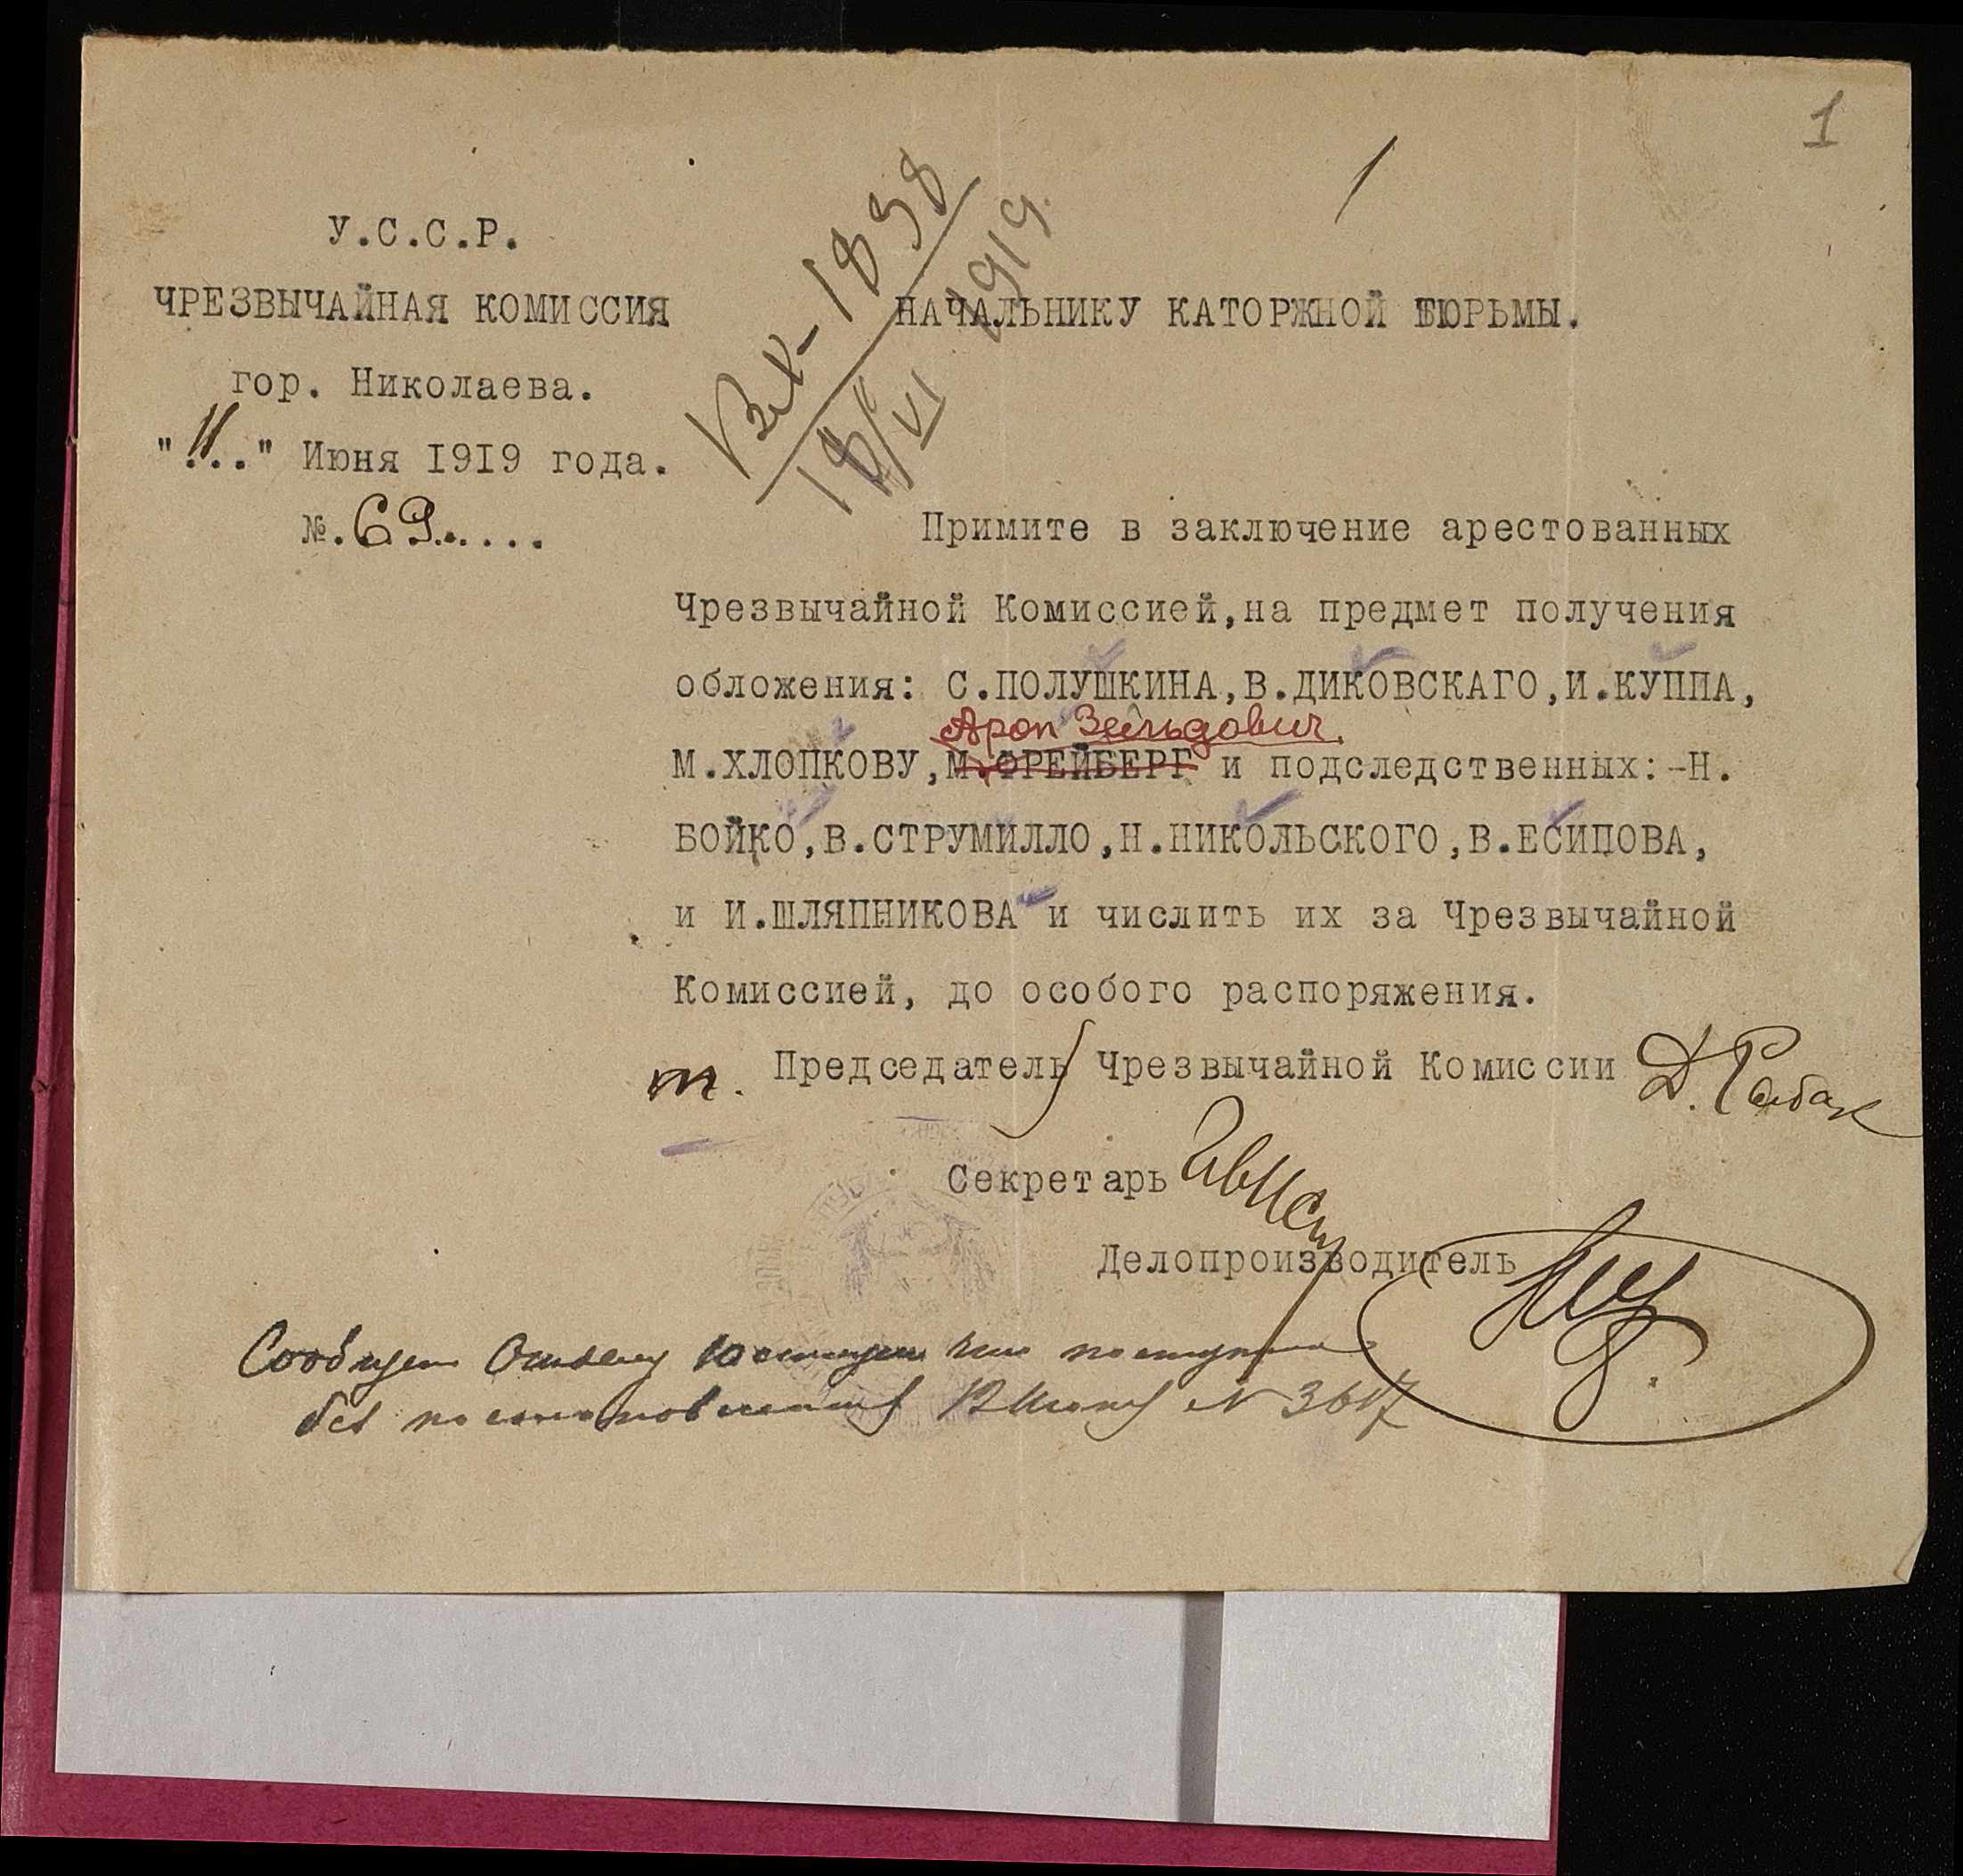 1
У.С.С.Р.
ЧРЕЗВЫЧАЙНАЯ КОМИССИЯ
гор. Николаева.
"11.." Июня 1919 года.
№.69.....
Вх-1898
18/VI 1919.
НАЧАЛЬНИКУ КАТОРЖНОЙ ТЮРЬМЫ.
Примите в заключение арестованных
Чрезвычайной Комиссией,на предмет получения
обложения: С.ПОЛУШКИНА,В.ДИКОВСКАГО,И.КУППА,
Арон Зельдович
М.ХЛОПКОВУ,М.ФРЕЙБЕРГ и подследственных:-Н.
БОЙКО,В.СТРУМИЛЛО,Н.НИКОЛЬСКОГО,В.ЕСИПОВА,
и И.ШЛЯПНИКОВА и числить их за Чрезвычайной
Комиссией, до особого распоряжения.
т. Председатель Чрезвычайной Комиссии
Секретарь
Делопроизводитель
Отделу Юстиции что
без постановления Июня № 3617